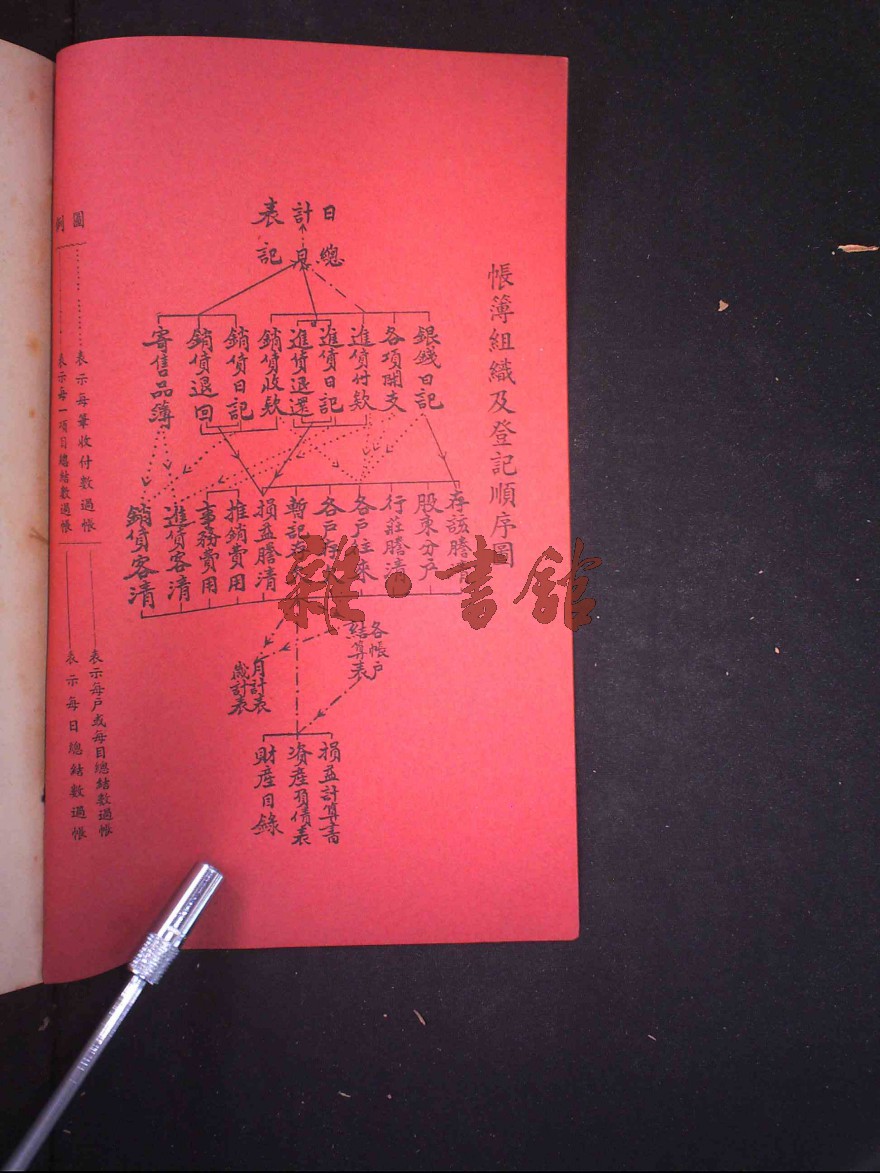 帳簿組織及登記順序圖
日計表
總日記
銀錢日記
各項開支
進貨付款
進貨日記
進貨退還
銷貨收款
銷貨日記
銷貨退回
寄售品簿
存該謄清
股東分戶
行莊謄清
各戶往來
各戶存
暫記存
損益謄清
推銷費用
事務費用
進貨客清
銷貨客清
各帳戶
結算表
月計表
歲計表
損益計算書
資產負債表
財產目錄
圖例
表示每筆收付數過帳
表示每一項目總結數過帳
表示每戶或每目總結數過帳
表示每日總結數過帳
雜·書館